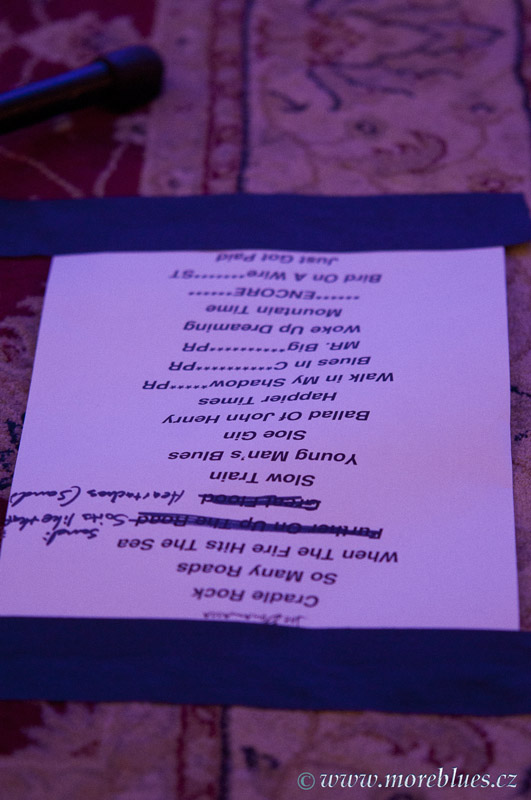 Cradle Rock
So Many Roads
When The Fire Hits The Sea
Further On Up The Road So its like that
Great Flood Heartaches (Sand
Slow Train
Young Man's Blues
Sloe Gin
Ballad Of John Henry
Happier Times
Walk in My Shadow*****PR
Blues In C**********PR
MR. Big***********PR
Woke Up Dreaming
Mountain Time
******ENCORE******
Bird On A Wire********ST
Just Got Paid
© www.moreblues.cz